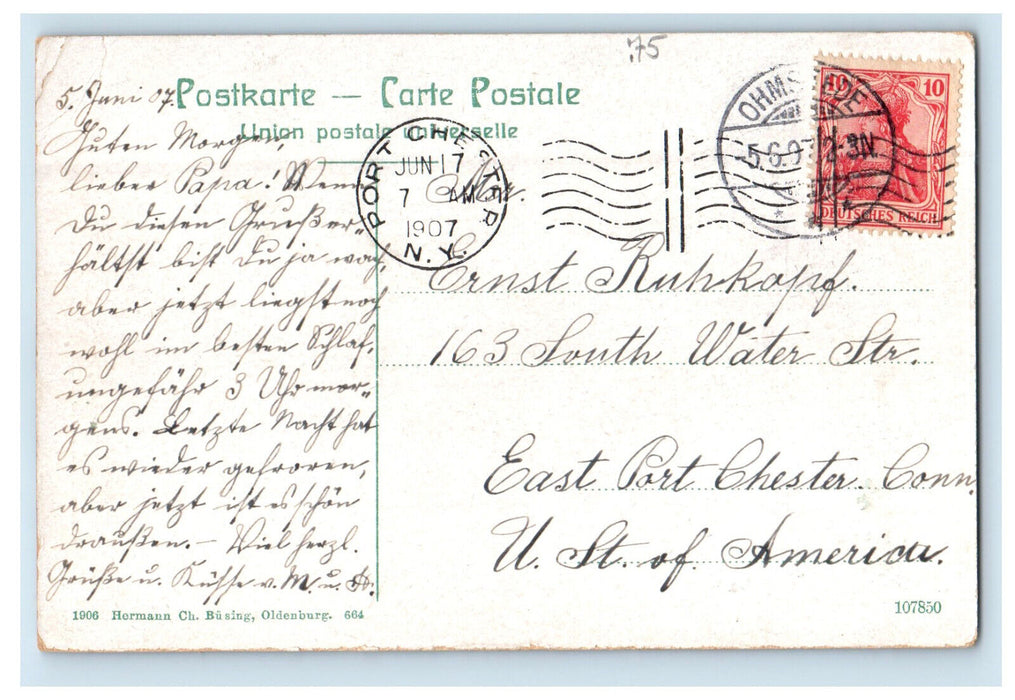 .75
Postkarte — Carte Postale
Union postale universelle
5. Juni 07.
Guten Morgen,
lieber Papa! Wenn
Du diesen Gruß er-
hältst bist Du ja wach,
aber jetzt liegst noch
wohl im besten Schlaf,
ungefähr 3 Uhr mor-
gens. Letzte Nacht hat
es wieder gefroren,
aber jetzt ist es schön
draußen. – Viel herzl.
Grüße u. Küsse v. M. u. A.
PORT CHESTER
JUN 17
7 AM
1907
N.Y.
OHMSTEDE
5.6.07. 2-3N.
10 10
DEUTSCHES REICH
Mr.
Ernst Ruhkopf.
163 South Water Str.
East Port Chester. Conn.
U. St. of America.
1906 Hermann Ch. Büsing, Oldenburg. 664
107850